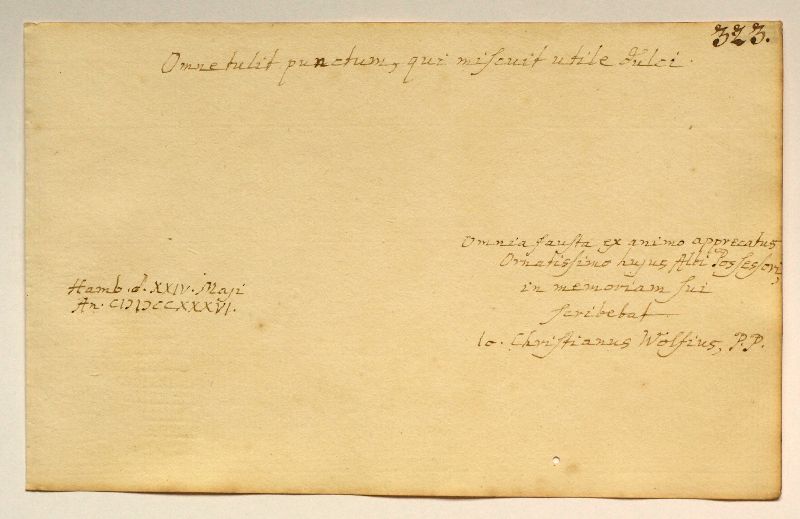 323.
Omne tulit punctum, qui miscuit utile dulci.
Omnia fausta ex animo apprecatus
Ornatissimo hujus Albi Possessori,
in memoriam sui
scribebat
Io. Christianus Wolfius, P.P.
Hamb. d. XXIV. Maji
An. CIƆIƆCCXXXVI.